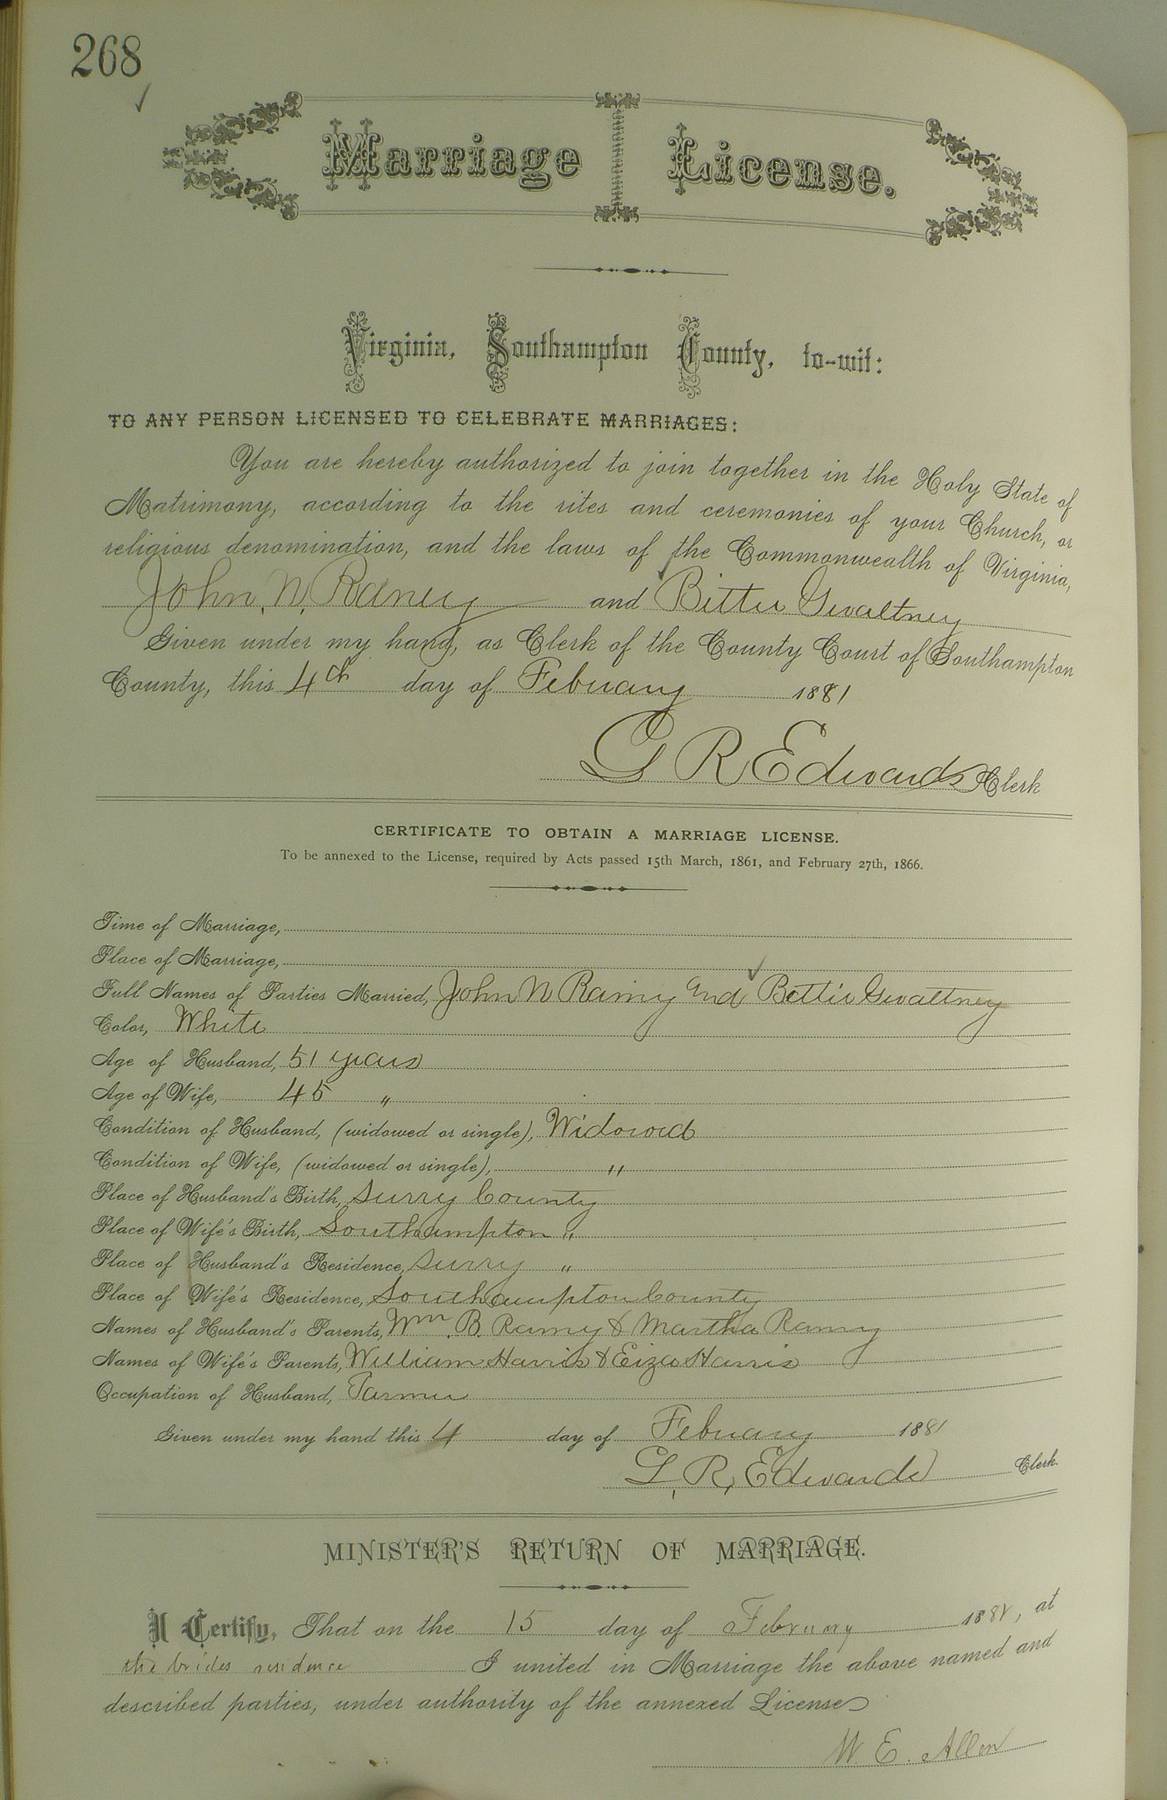 268
Marriage License.
Virginia, Southampton County, to-wit:
TO ANY PERSON LICENSED TO CELEBRATE MARRIAGES:
You are hereby authorized to join together in the Holy State of
Matrimony, according to the rites and ceremonies of your Church, or
religious denomination, and the laws of the Commonwealth of Virginia,
John. N. Raney and Bettie Gwaltney
Given under my hand, as Clerk of the County Court of Southampton
County, this 4th day of February 1881
L R Edwards Clerk
CERTIFICATE TO OBTAIN A MARRIAGE LICENSE.
To be annexed to the License, required by Acts passed 15th March, 1861, and February 27th, 1866.
Time of Marriage,
Place of Marriage,
Full Names of Parties Married, John N Ramy and Bettie Gwaltney
Color, White
Age of Husband, 51 years
Age of Wife, 45 "
Condition of Husband, (widowed or single), Widowed
Condition of Wife, (widowed or single), "
Place of Husband's Birth, Surry County
Place of Wife's Birth, Southampton "
Place of Husband's Residence, Surry "
Place of Wife's Residence, Southampton County
Names of Husband's Parents, Wm. B. Ramy & Martha Ramy
Names of Wife's Parents, William Harris & Eiza Harris
Occupation of Husband, Farmer
Given under my hand this 4 day of February 1881
L. R. Edwards Clerk.
MINISTER'S RETURN OF MARRIAGE.
I Certify, That on the 15 day of February 188 , at
the brides residence I united in Marriage the above named and
described parties, under authority of the annexed License
W. E. Allen